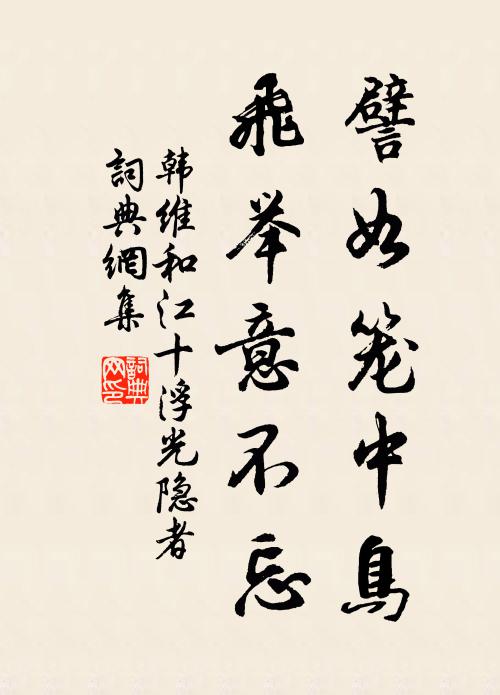 譬如笼中鳥
飛举意不忘
韩维和江十浮光隐者
詞典網集
詞典
网印